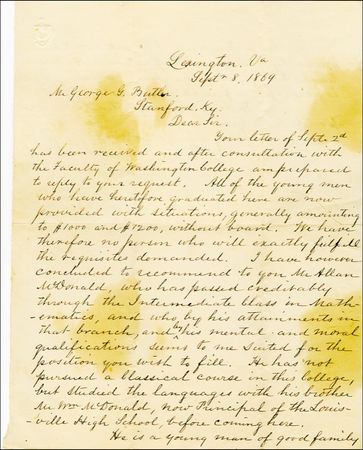 Lexington, Va
Septr 8, 1869
Mr George G. Butler.
Stanford, Ky.
Dear Sir.
Your letter of Septr 2d
has been received and after consultation with
the Faculty of Washington College am prepared
to reply to your request. All of the young men
who have heretofore graduated here are now
provided with situations, generally amounting
to $1000 and $1200, without board. We have
therefore no person who will exactly fulfill
the requisites demanded. I have however
concluded to recommend to you Mr Allan
McDonald, who has passed creditably
through the Intermediate Class in Math-
-ematics, and who, by his attainments in
that branch, and by his mental and moral
qualifications seems to me suited for the
position you wish to fill. He has not
pursued a Classical course in this College,
but studied the languages with his brother
Mr Wm McDonald, now Principal of the Louis-
-ville High School, before coming here.
He is a young man of good family